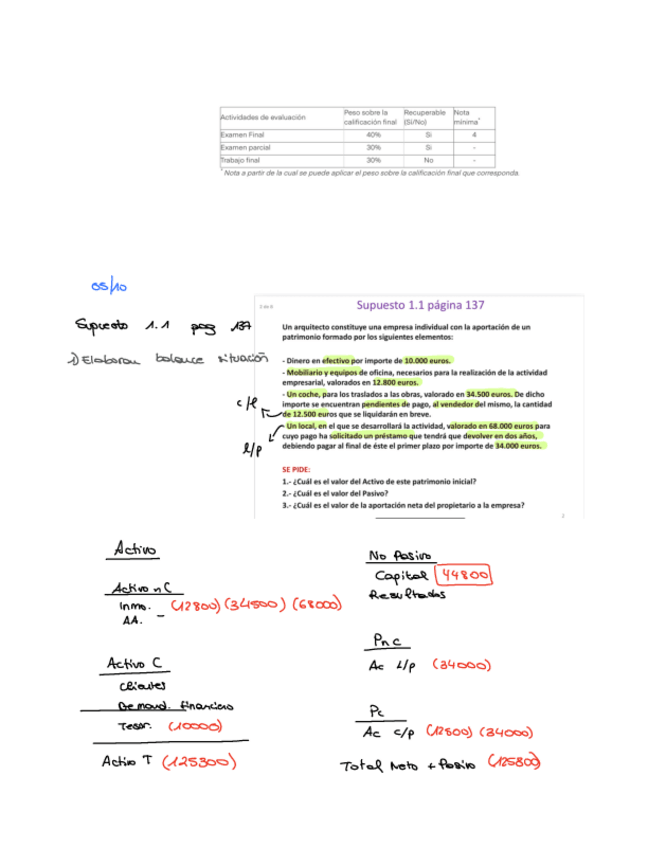 Actividades de evaluación Peso sobre la calificación final Recuperable (Sí/No) Nota mínima*
Examen Final 40% Sí 4
Examen parcial 30% Sí -
Trabajo final 30% No -
* Nota a partir de la cual se puede aplicar el peso sobre la calificación final que corresponda.
05/10
Supuesto 1.1 pag 137
1) Elaboran balance situación
Supuesto 1.1 página 137
Un arquitecto constituye una empresa individual con la aportación de un
patrimonio formado por los siguientes elementos:
- Dinero en efectivo por importe de 10.000 euros.
- Mobiliario y equipos de oficina, necesarios para la realización de la actividad
empresarial, valorados en 12.800 euros.
- Un coche, para los traslados a las obras, valorado en 34.500 euros. De dicho
importe se encuentran pendientes de pago, al vendedor del mismo, la cantidad
de 12.500 euros que se liquidarán en breve.
- Un local, en el que se desarrollará la actividad, valorado en 68.000 euros para
cuyo pago ha solicitado un préstamo que tendrá que devolver en dos años,
debiendo pagar al final de éste el primer plazo por importe de 34.000 euros.
c/p
l/p
SE PIDE:
1.- ¿Cuál es el valor del Activo de este patrimonio inicial?
2.- ¿Cuál es el valor del Pasivo?
3.- ¿Cuál es el valor de la aportación neta del propietario a la empresa?
Activo
Activo n C
Inmo. (12800) (34500) (68000)
AA. -
Activo C
Clientes
financiero
Tesor. (10000)
Activo T (125300)
No Pasivo
Capital 44800
Resultados
Pnc
Ac L/p (34000)
Pc
Ac c/p (12500) (34000)
Total Neto + Pasivo (125800)